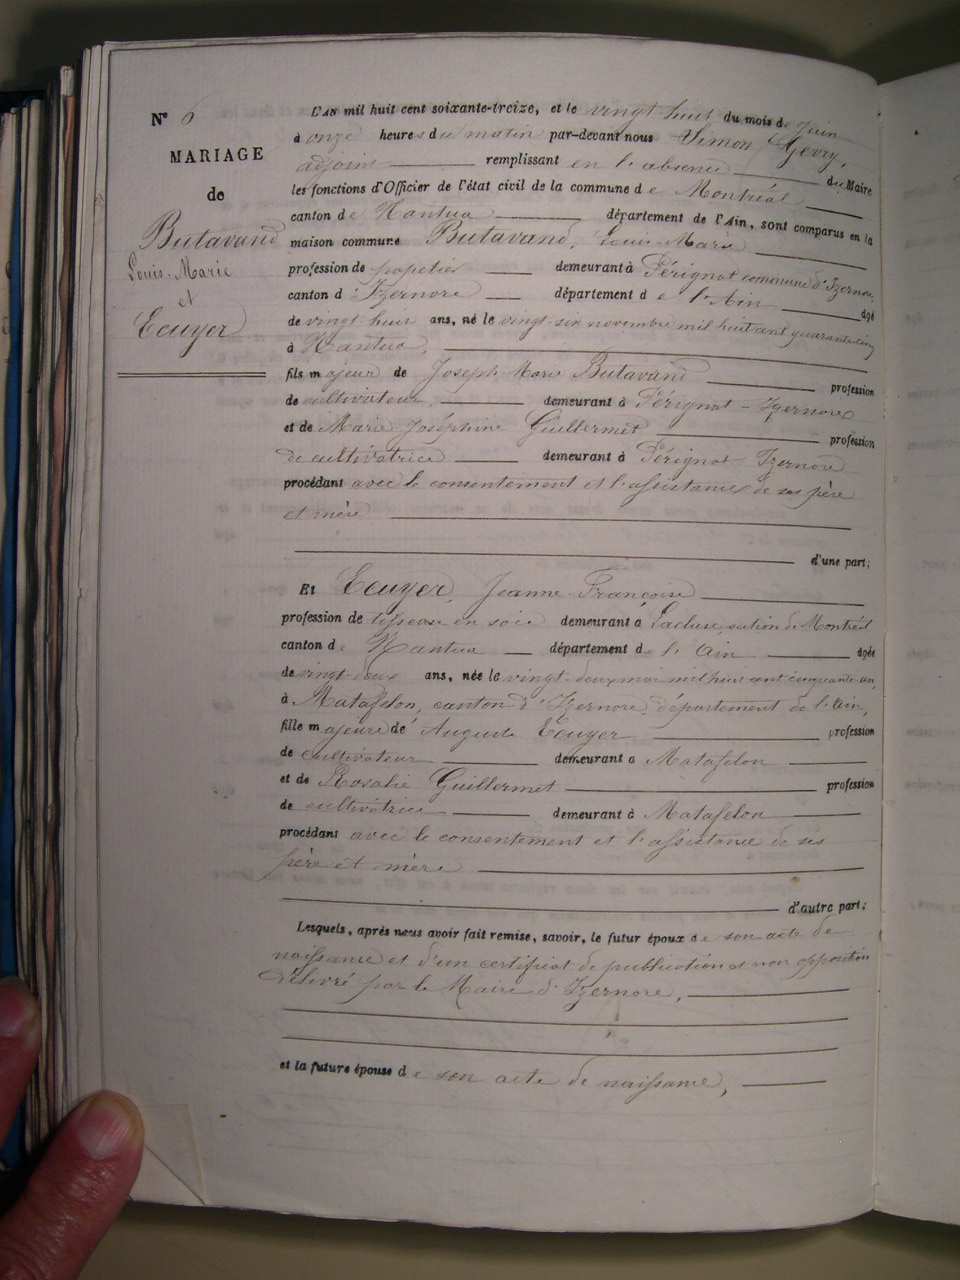 N° 6
MARIAGE
de
Butavand
Louis-Marie
et
Ecuyer
L'AN mil huit cent soixante-treize, et le vingt huit du mois de juin
à onze heures du matin par-devant nous Simon Gevry,
adjoint remplissant en l'absence du Maire
les fonctions d'Officier de l'état civil de la commune de Montréal
canton de Nantua département de l'Ain, sont comparus en la
maison commune Butavand, Louis-Marie
profession de papetier demeurant à Pérignat commune d'Izernore,
canton d'Izernore département de l'Ain âgé
de vingt-huit ans, né le vingt-six novembre mil huit cent quarante-cinq
à Nantua,
fils majeur de Joseph-Marie Butavand profession
de cultivateur, demeurant à Pérignat-Izernore
et de Marie Joséphine Guillermet profession
de cultivatrice demeurant à Pérignat-Izernore
procédant avec le consentement et l'assistance de ses père
et mère
d'une part;
Et Ecuyer, Jeanne Françoise
profession de tisseuse en soie demeurant à Lacluse, section de Montréal
canton de Nantua département de l'Ain âgée
de vingt-deux ans, née le vingt-deux mai mil huit cent cinquante-un,
à Matafelon, canton d'Izernore, département de l'Ain,
fille majeure de Auguste Ecuyer profession
de cultivateur demeurant à Matafelon
et de Rosalie Guillermet profession
de cultivatrice demeurant à Matafelon
procédant avec le consentement et l'assistance de ses
père et mère
d'autre part;
Lesquels, après nous avoir fait remise, savoir, le futur époux de son acte de
naissance et d'un certificat de publication et non opposition
délivré par le Maire d'Izernore,
et la future épouse de son acte de naissance,